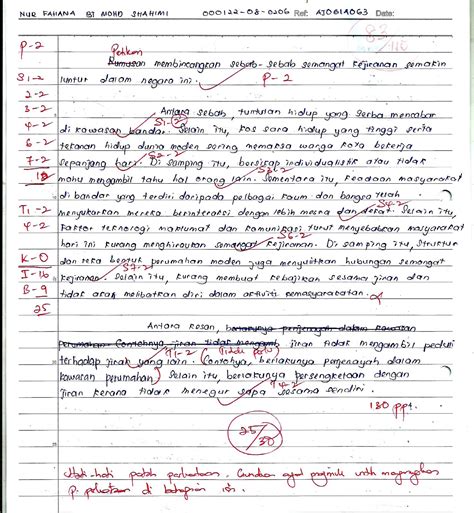 NUR FAHANA BT MOHD SHAHIMI 000122-08-0206 Ref: AJ061A063 Date:
83
P-2 Petikan
Rumusan membincangkan sebab-sebab semangat kejiranan semakin
S1-2 luntur dalam negara ini. P-2
2-2
3-2 Antara sebab, tuntutan hidup yang serba mencabar
4-2 di kawasan bandar. Selain itu, kos sara hidup yang tinggi serta
6-2 tekanan hidup dunia moden sering memaksa warga kota bekerja
7-2 sepanjang hari. Di samping itu, bersikap individualistik atau tidak
mahu mengambil tahu hal orang lain. Sementara itu, keadaan masyarakat
di bandar yang terdiri daripada pelbagai kaum dan bangsa telah
T1-2 menyukarkan mereka berinteraksi dengan lebih mesra dan dekat. Selain itu,
4-2 faktor teknologi maklumat dan komunikasi turut menyebabkan masyarakat
hari ini kurang menghiraukan semangat kejiranan. Di samping itu, struktur
K-0 dan reka bentuk perumahan moden juga menyulitkan hubungan semangat
I-16 kejiranan. Selain itu, kurang membuat kebajikan sesama jiran dan
B-9 tidak akan melibatkan diri dalam aktiviti kemasyarakatan.
25
Antara kesan, berlakunya penjenayah dalam kawasan
perumahan. Contohnya, jiran tidak mengamb jiran tidak mengambil peduli
T1-2 (Tidak perlu)
terhadap jiran yang lain. (Contohnya, berlakunya penjenayah dalam
kawasan perumahan) Selain itu, berlakunya persengketaan dengan
T4-2
jiran kerana tidak menegur sapa sesama sendiri.
180 ppt.
25/30
Hati-hati patah perkataan. Gunakan
di bahagian isi.